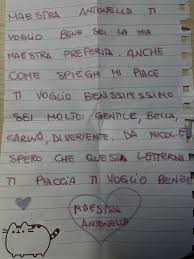 MAESTRA ANTONELLA TI
VOGLIO BENE SEI LA MIA
MAESTRA PREFERITA. ANCHE
COME SPIEGHI MI PIACE
TI VOGLIO BENISSIMISSIMO
SEI MOLTO: GENTILE, BELLA,
CARINA, DIVERTENTE. DA NICOLE
SPERO CHE QUESTA LETTERINA
TI PIACCIA TI VOGLIO BENEE
MAESTRA
ANTONELLA